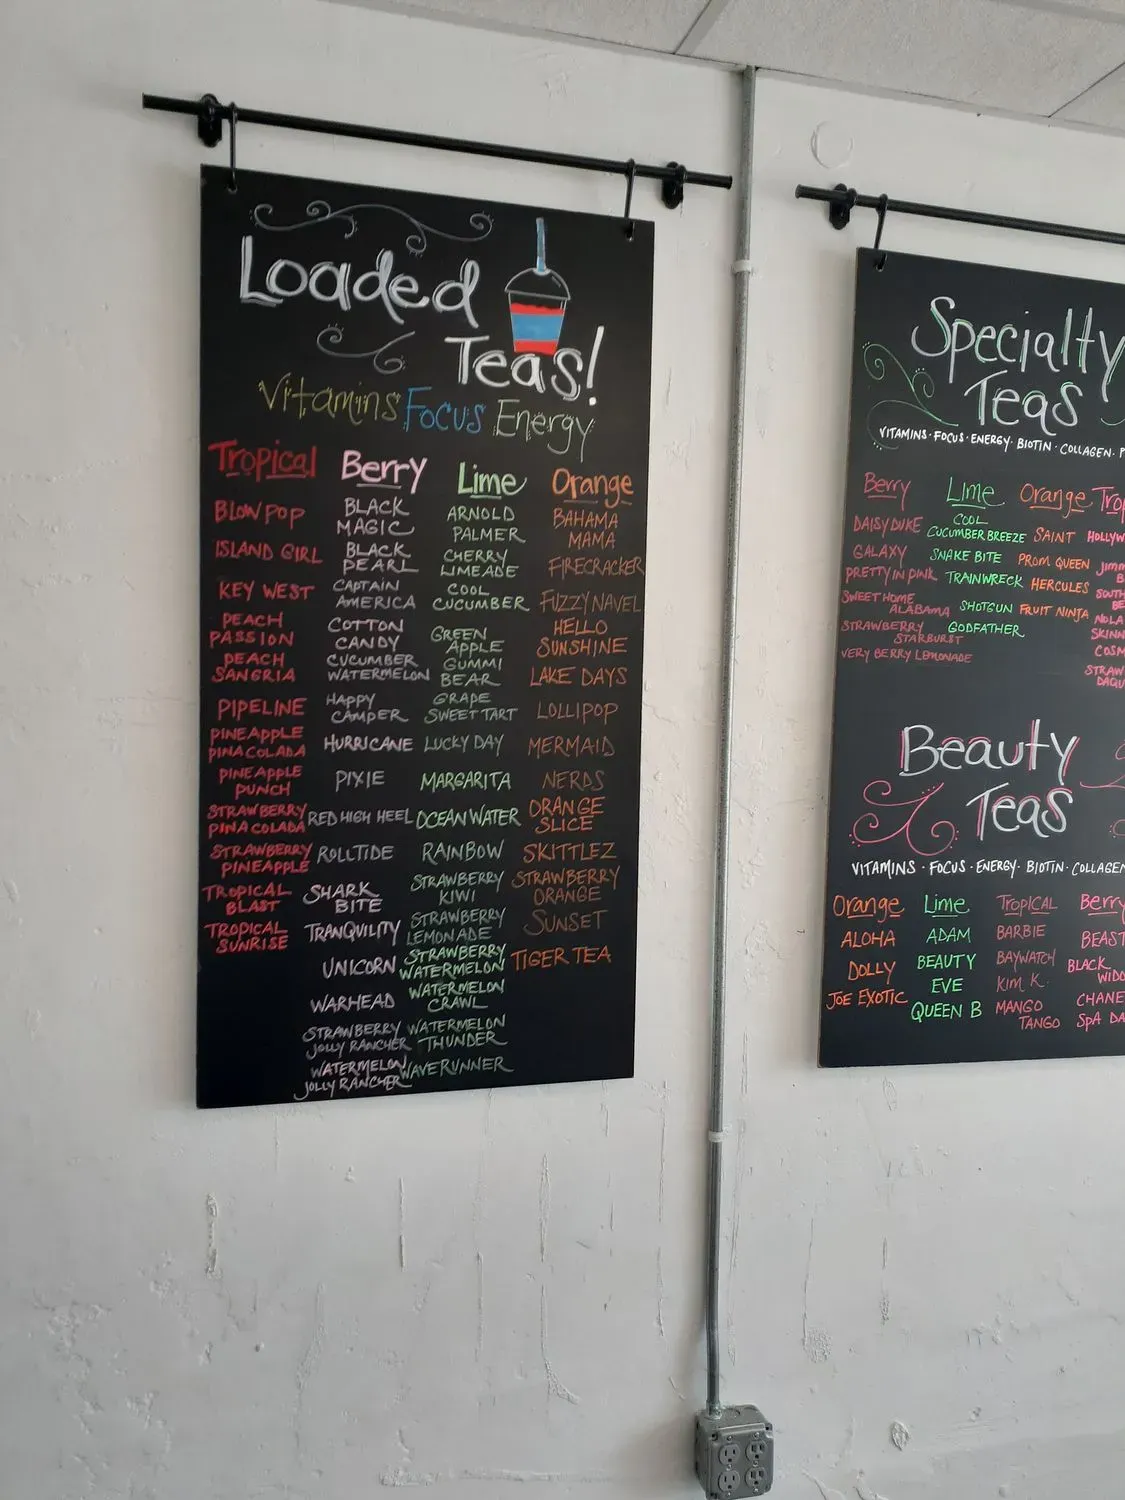 Loaded
Teas!
Vitamins Focus Energy
Tropical
BLOW POP
ISLAND GIRL
KEY WEST
PEACH
PASSION
PEACH
SANGRIA
PIPELINE
PINEAPPLE
PINA COLADA
PINEAPPLE
PUNCH
STRAWBERRY
PINA COLADA
STRAWBERRY
PINEAPPLE
TROPICAL
BLAST
TROPICAL
SUNRISE
Berry
BLACK
MAGIC
BLACK
PEARL
CAPTAIN
AMERICA
COTTON
CANDY
CUCUMBER
WATERMELON
HAPPY
CAMPER
HURRICANE
PIXIE
RED HIGH HEEL
ROLLTIDE
SHARK
BITE
TRANQUILITY
UNICORN
WARHEAD
STRAWBERRY
JOLLY RANCHER
WATERMELON
JOLLY RANCHER
Lime
ARNOLD
PALMER
CHERRY
LIMEADE
COOL
CUCUMBER
GREEN
APPLE
GUMMI
BEAR
GRAPE
SWEET TART
LUCKY DAY
MARGARITA
OCEAN WATER
RAINBOW
STRAWBERRY
KIWI
STRAWBERRY
LEMONADE
STRAWBERRY
WATERMELON
WATERMELON
CRAWL
WATERMELON
THUNDER
WAVERUNNER
Orange
BAHAMA
MAMA
FIRECRACKER
FUZZY NAVEL
HELLO
SUNSHINE
LAKE DAYS
LOLLIPOP
MERMAID
NERDS
ORANGE
SLICE
SKITTLEZ
STRAWBERRY
ORANGE
SUNSET
TIGER TEA
Specialty
Teas
VITAMINS · FOCUS · ENERGY · BIOTIN · COLLAGEN · P
Berry
DAISY DUKE
GALAXY
PRETTY IN PINK
SWEET HOME
ALABAMA
STRAWBERRY
STARBURST
VERY BERRY LEMONADE
Lime
COOL
CUCUMBER BREEZE
SNAKE BITE
TRAINWRECK
SHOTGUN
GODFATHER
Orange
SAINT
PROM QUEEN
HERCULES
FRUIT NINJA
Trop
HOLLYW
JIMM
B
SOUTH
BE
NOLA
SKINN
COSM
STRAW
DAQU
Beauty
Teas
VITAMINS · FOCUS · ENERGY · BIOTIN · COLLAGEN
Orange
ALOHA
DOLLY
JOE EXOTIC
Lime
ADAM
BEAUTY
EVE
QUEEN B
Tropical
BARBIE
BAYWATCH
KIM K.
MANGO
TANGO
Berry
BEAST
BLACK
WIDO
CHANE
SPA DA